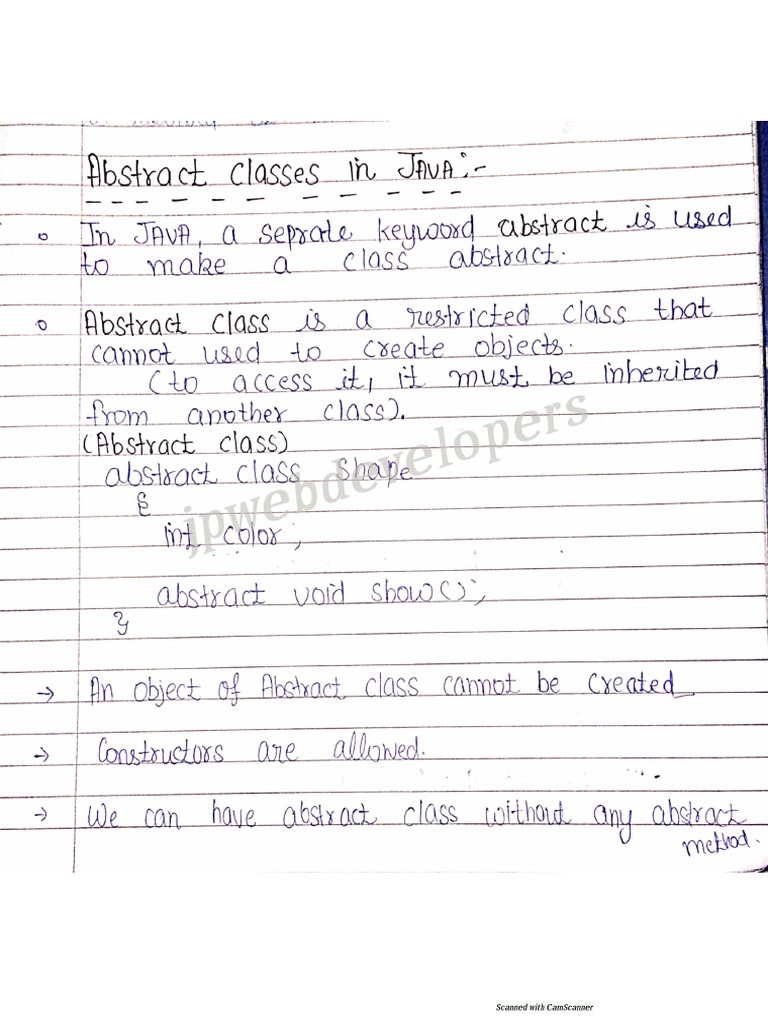 Abstract Classes in JAVA:-
In JAVA, a seprate keyword abstract is used
to make a class abstract.
Abstract class is a restricted class that
cannot used to create objects.
(to access it, it must be inherited
from another class).
(Abstract class)
abstract class Shape
{
int color;
abstract void show();
}
jpwebdevelopers
→ An object of Abstract class cannot be created
→ Constructors are allowed.
→ We can have abstract class without any abstract
method.
Scanned with CamScanner